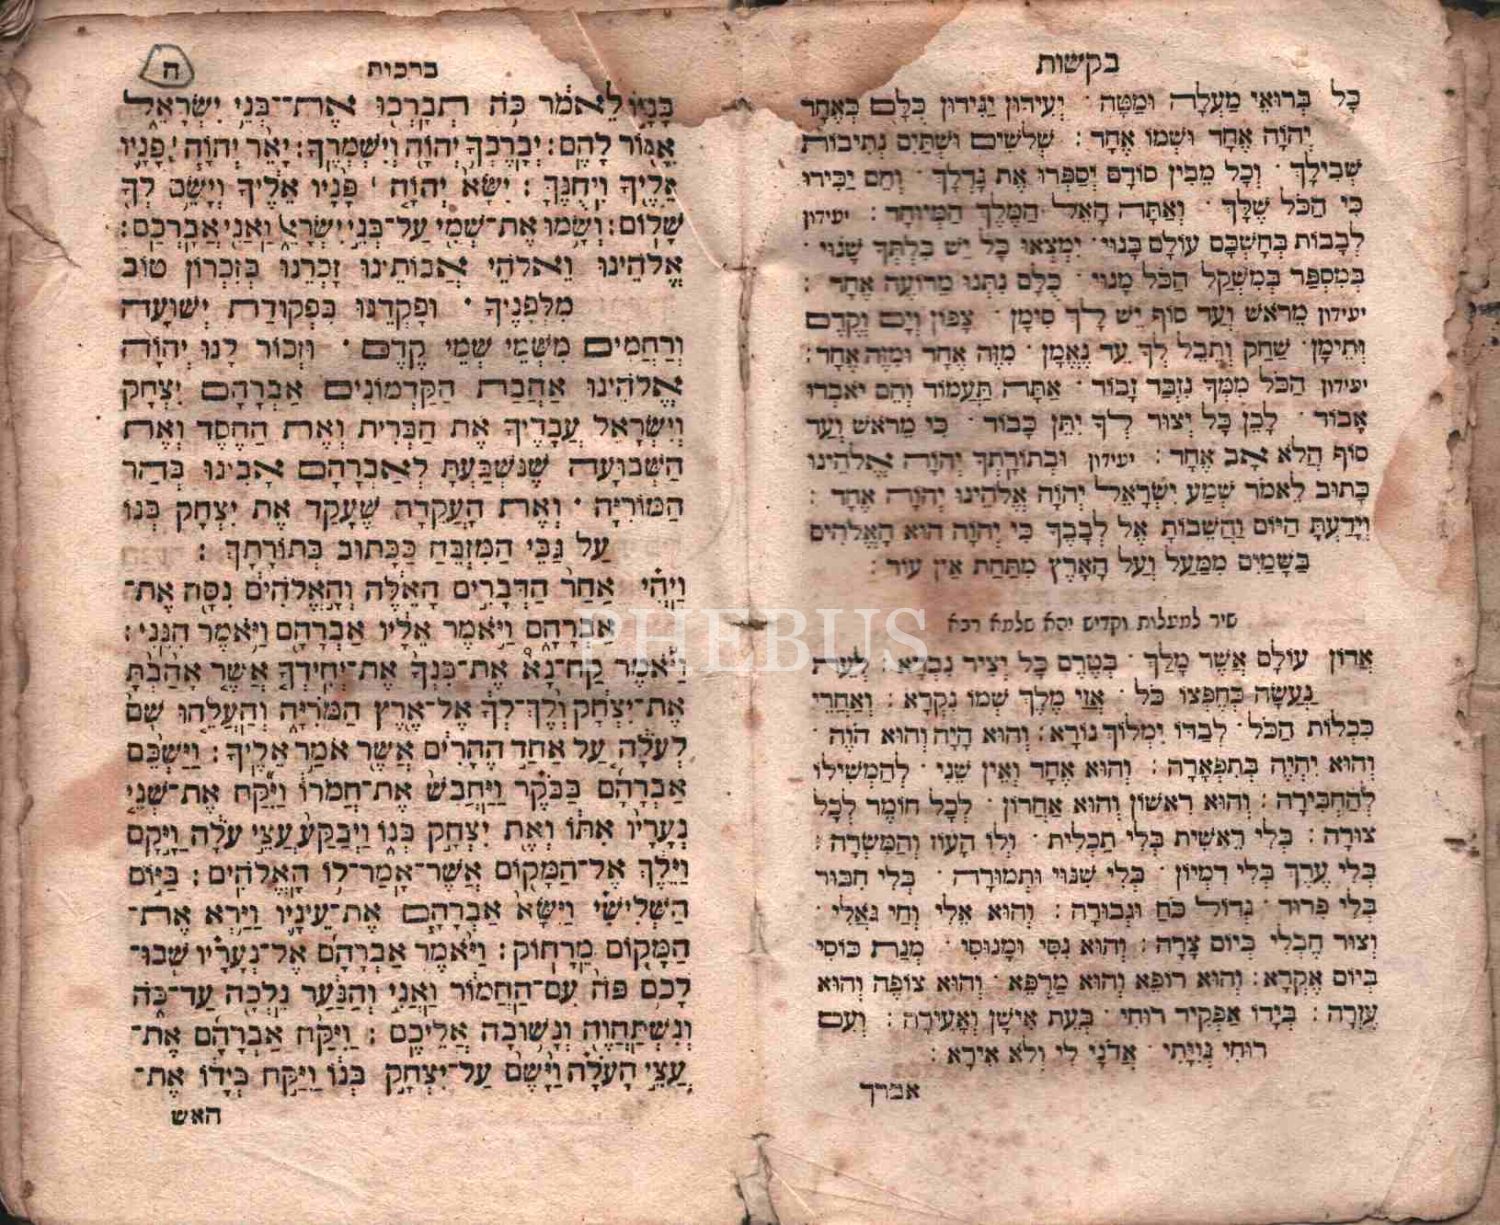 בקשות
כָּל בְּרוּאֵי מַעְלָה וּמַטָּה · יְעִידוּן יַגִּידוּן כֻּלָּם כְּאֶחָד
יְהֹוָה אֶחָד וּשְׁמוֹ אֶחָד : שְׁלֹשִׁים וּשְׁתַּיִם נְתִיבוֹת
שְׁבִילָךְ · וְכָל מֵבִין סוֹדָם יְסַפְּרוּ אֶת גָּדְלָךְ · וְהֵם יַכִּירוּ
כִּי הַכֹּל שֶׁלָּךְ · וְאַתָּה הָאֵל הַמֶּלֶךְ הַמְיוּחָד : יעידון
לְבָבוֹת בְּחָשְׁבָּם עוֹלָם בָּנוּי · יִמְצְאוּ כָּל יֵשׁ בִּלְתְּךָ שָׁנוּי ·
בְּמִסְפָּר בְּמִשְׁקָל הַכֹּל מָנוּי · כֻּלָּם נִתְּנוּ מֵרוֹעֶה אֶחָד :
יעידון מֵרֹאשׁ וְעַד סוֹף יֵשׁ לָךְ סִימָן · צָפוֹן וְיָם וָקֶדֶם
וְתֵימָן · שַׁחַק וְתֵבֵל לְךָ עֵד נֶאֱמָן · מִזֶּה אֶחָד וּמִזֶּה אֶחָד :
יעידון הַכֹּל מִמְּךָ נִזְבַּד זָבוֹד · אַתָּה תַּעֲמוֹד וְהֵם יֹאבְדוּ
אָבוֹד · לָכֵן כָּל יְצוּר לְךָ יִתֵּן כָּבוֹד · כִּי מֵרֹאשׁ וְעַד
סוֹף הֲלֹא אָב אֶחָד : יעידון וּבְתוֹרָתְךָ יְהֹוָה אֱלֹהֵינוּ
כָּתוּב לֵאמֹר שְׁמַע יִשְׂרָאֵל יְהֹוָה אֱלֹהֵינוּ יְהֹוָה אֶחָד :
וְיָדַעְתָּ הַיּוֹם וַהֲשֵׁבוֹתָ אֶל לְבָבֶךָ כִּי יְהֹוָה הוּא הָאֱלֹהִים
בַּשָּׁמַיִם מִמַּעַל וְעַל הָאָרֶץ מִתַּחַת אֵין עוֹד :
שיר למעלות וקדיש יהא שלמא רבא
אֲדוֹן עוֹלָם אֲשֶׁר מָלַךְ · בְּטֶרֶם כָּל יְצִיר נִבְרָא : לְעֵת
נַעֲשָׂה בְחֶפְצוֹ כֹּל · אֲזַי מֶלֶךְ שְׁמוֹ נִקְרָא : וְאַחֲרֵי
כִּכְלוֹת הַכֹּל · לְבַדּוֹ יִמְלוֹךְ נוֹרָא : וְהוּא הָיָה וְהוּא הֹוֶה ·
וְהוּא יִהְיֶה בְּתִפְאָרָה : וְהוּא אֶחָד וְאֵין שֵׁנִי · לְהַמְשִׁילוֹ
לְהַחְבִּירָה : וְהוּא רִאשׁוֹן וְהוּא אַחֲרוֹן · לְכָל חוֹמֶר לְכָל
צוּרָה : בְּלִי רֵאשִׁית בְּלִי תַכְלִית · וְלוֹ הָעוֹז וְהַמִּשְׂרָה :
בְּלִי עֶרֶךְ בְּלִי דִמְיוֹן · בְּלִי שִׁנּוּי וּתְמוּרָה · בְּלִי חִבּוּר
בְּלִי פֵרוּד · גְּדוֹל כֹּחַ וּגְבוּרָה : וְהוּא אֵלִי וְחַי גֹּאֲלִי ·
וְצוּר חֶבְלִי בְּיוֹם צָרָה : וְהוּא נִסִּי וּמָנוּסִי · מְנָת כּוֹסִי
בְּיוֹם אֶקְרָא : וְהוּא רוֹפֵא וְהוּא מַרְפֵּא · וְהוּא צוֹפֶה וְהוּא
עֶזְרָה : בְּיָדוֹ אַפְקִיד רוּחִי · בְּעֵת אִישַׁן וְאָעִירָה : וְעִם
רוּחִי גְּוִיָּתִי · אֲדֹנָי לִי וְלֹא אִירָא :
אברך
ברכות ח
בָּנָיו לֵאמֹר כֹּה תְבָרְכוּ אֶת־בְּנֵי יִשְׂרָאֵל
אָמוֹר לָהֶם : יְבָרֶכְךָ יְהֹוָה וְיִשְׁמְרֶךָ : יָאֵר יְהֹוָה ׀ פָּנָיו
אֵלֶיךָ וִיחֻנֶּךָּ : יִשָּׂא יְהֹוָה ׀ פָּנָיו אֵלֶיךָ וְיָשֵׂם לְךָ
שָׁלוֹם : וְשָׂמוּ אֶת־שְׁמִי עַל־בְּנֵי יִשְׂרָאֵל וַאֲנִי אֲבָרְכֵם :
אֱלֹהֵינוּ וֵאלֹהֵי אֲבוֹתֵינוּ זָכְרֵנוּ בְּזִכְרוֹן טוֹב
מִלְּפָנֶיךָ · וּפָקְדֵנוּ בִּפְקוּדַת יְשׁוּעָה
וְרַחֲמִים מִשְּׁמֵי שְׁמֵי קֶדֶם · וּזְכוֹר לָנוּ יְהֹוָה
אֱלֹהֵינוּ אַהֲבַת הַקַּדְמוֹנִים אַבְרָהָם יִצְחָק
וְיִשְׂרָאֵל עֲבָדֶיךָ אֶת הַבְּרִית וְאֶת הַחֶסֶד וְאֶת
הַשְּׁבוּעָה שֶׁנִּשְׁבַּעְתָּ לְאַבְרָהָם אָבִינוּ בְּהַר
הַמּוֹרִיָּה · וְאֶת הָעֲקֵדָה שֶׁעָקַד אֶת יִצְחָק בְּנוֹ
עַל גַּבֵּי הַמִּזְבֵּחַ כַּכָּתוּב בְּתוֹרָתָךְ :
וַיְהִי אַחַר הַדְּבָרִים הָאֵלֶּה וְהָאֱלֹהִים נִסָּה אֶת־
אַבְרָהָם וַיֹּאמֶר אֵלָיו אַבְרָהָם וַיֹּאמֶר הִנֵּנִי :
וַיֹּאמֶר קַח־נָא אֶת־בִּנְךָ אֶת־יְחִידְךָ אֲשֶׁר אָהַבְתָּ
אֶת־יִצְחָק וְלֶךְ־לְךָ אֶל־אֶרֶץ הַמֹּרִיָּה וְהַעֲלֵהוּ שָׁם
לְעֹלָה עַל אַחַד הֶהָרִים אֲשֶׁר אֹמַר אֵלֶיךָ : וַיַּשְׁכֵּם
אַבְרָהָם בַּבֹּקֶר וַיַּחֲבֹשׁ אֶת־חֲמֹרוֹ וַיִּקַּח אֶת־שְׁנֵי
נְעָרָיו אִתּוֹ וְאֵת יִצְחָק בְּנוֹ וַיְבַקַּע עֲצֵי עֹלָה וַיָּקָם
וַיֵּלֶךְ אֶל־הַמָּקוֹם אֲשֶׁר־אָמַר־לוֹ הָאֱלֹהִים : בַּיּוֹם
הַשְּׁלִישִׁי וַיִּשָּׂא אַבְרָהָם אֶת־עֵינָיו וַיַּרְא אֶת־
הַמָּקוֹם מֵרָחוֹק : וַיֹּאמֶר אַבְרָהָם אֶל־נְעָרָיו שְׁבוּ־
לָכֶם פֹּה עִם־הַחֲמוֹר וַאֲנִי וְהַנַּעַר נֵלְכָה עַד־כֹּה
וְנִשְׁתַּחֲוֶה וְנָשׁוּבָה אֲלֵיכֶם : וַיִּקַּח אַבְרָהָם אֶת־
עֲצֵי הָעֹלָה וַיָּשֶׂם עַל־יִצְחָק בְּנוֹ וַיִּקַּח בְּיָדוֹ אֶת־
האש
PHEBUS